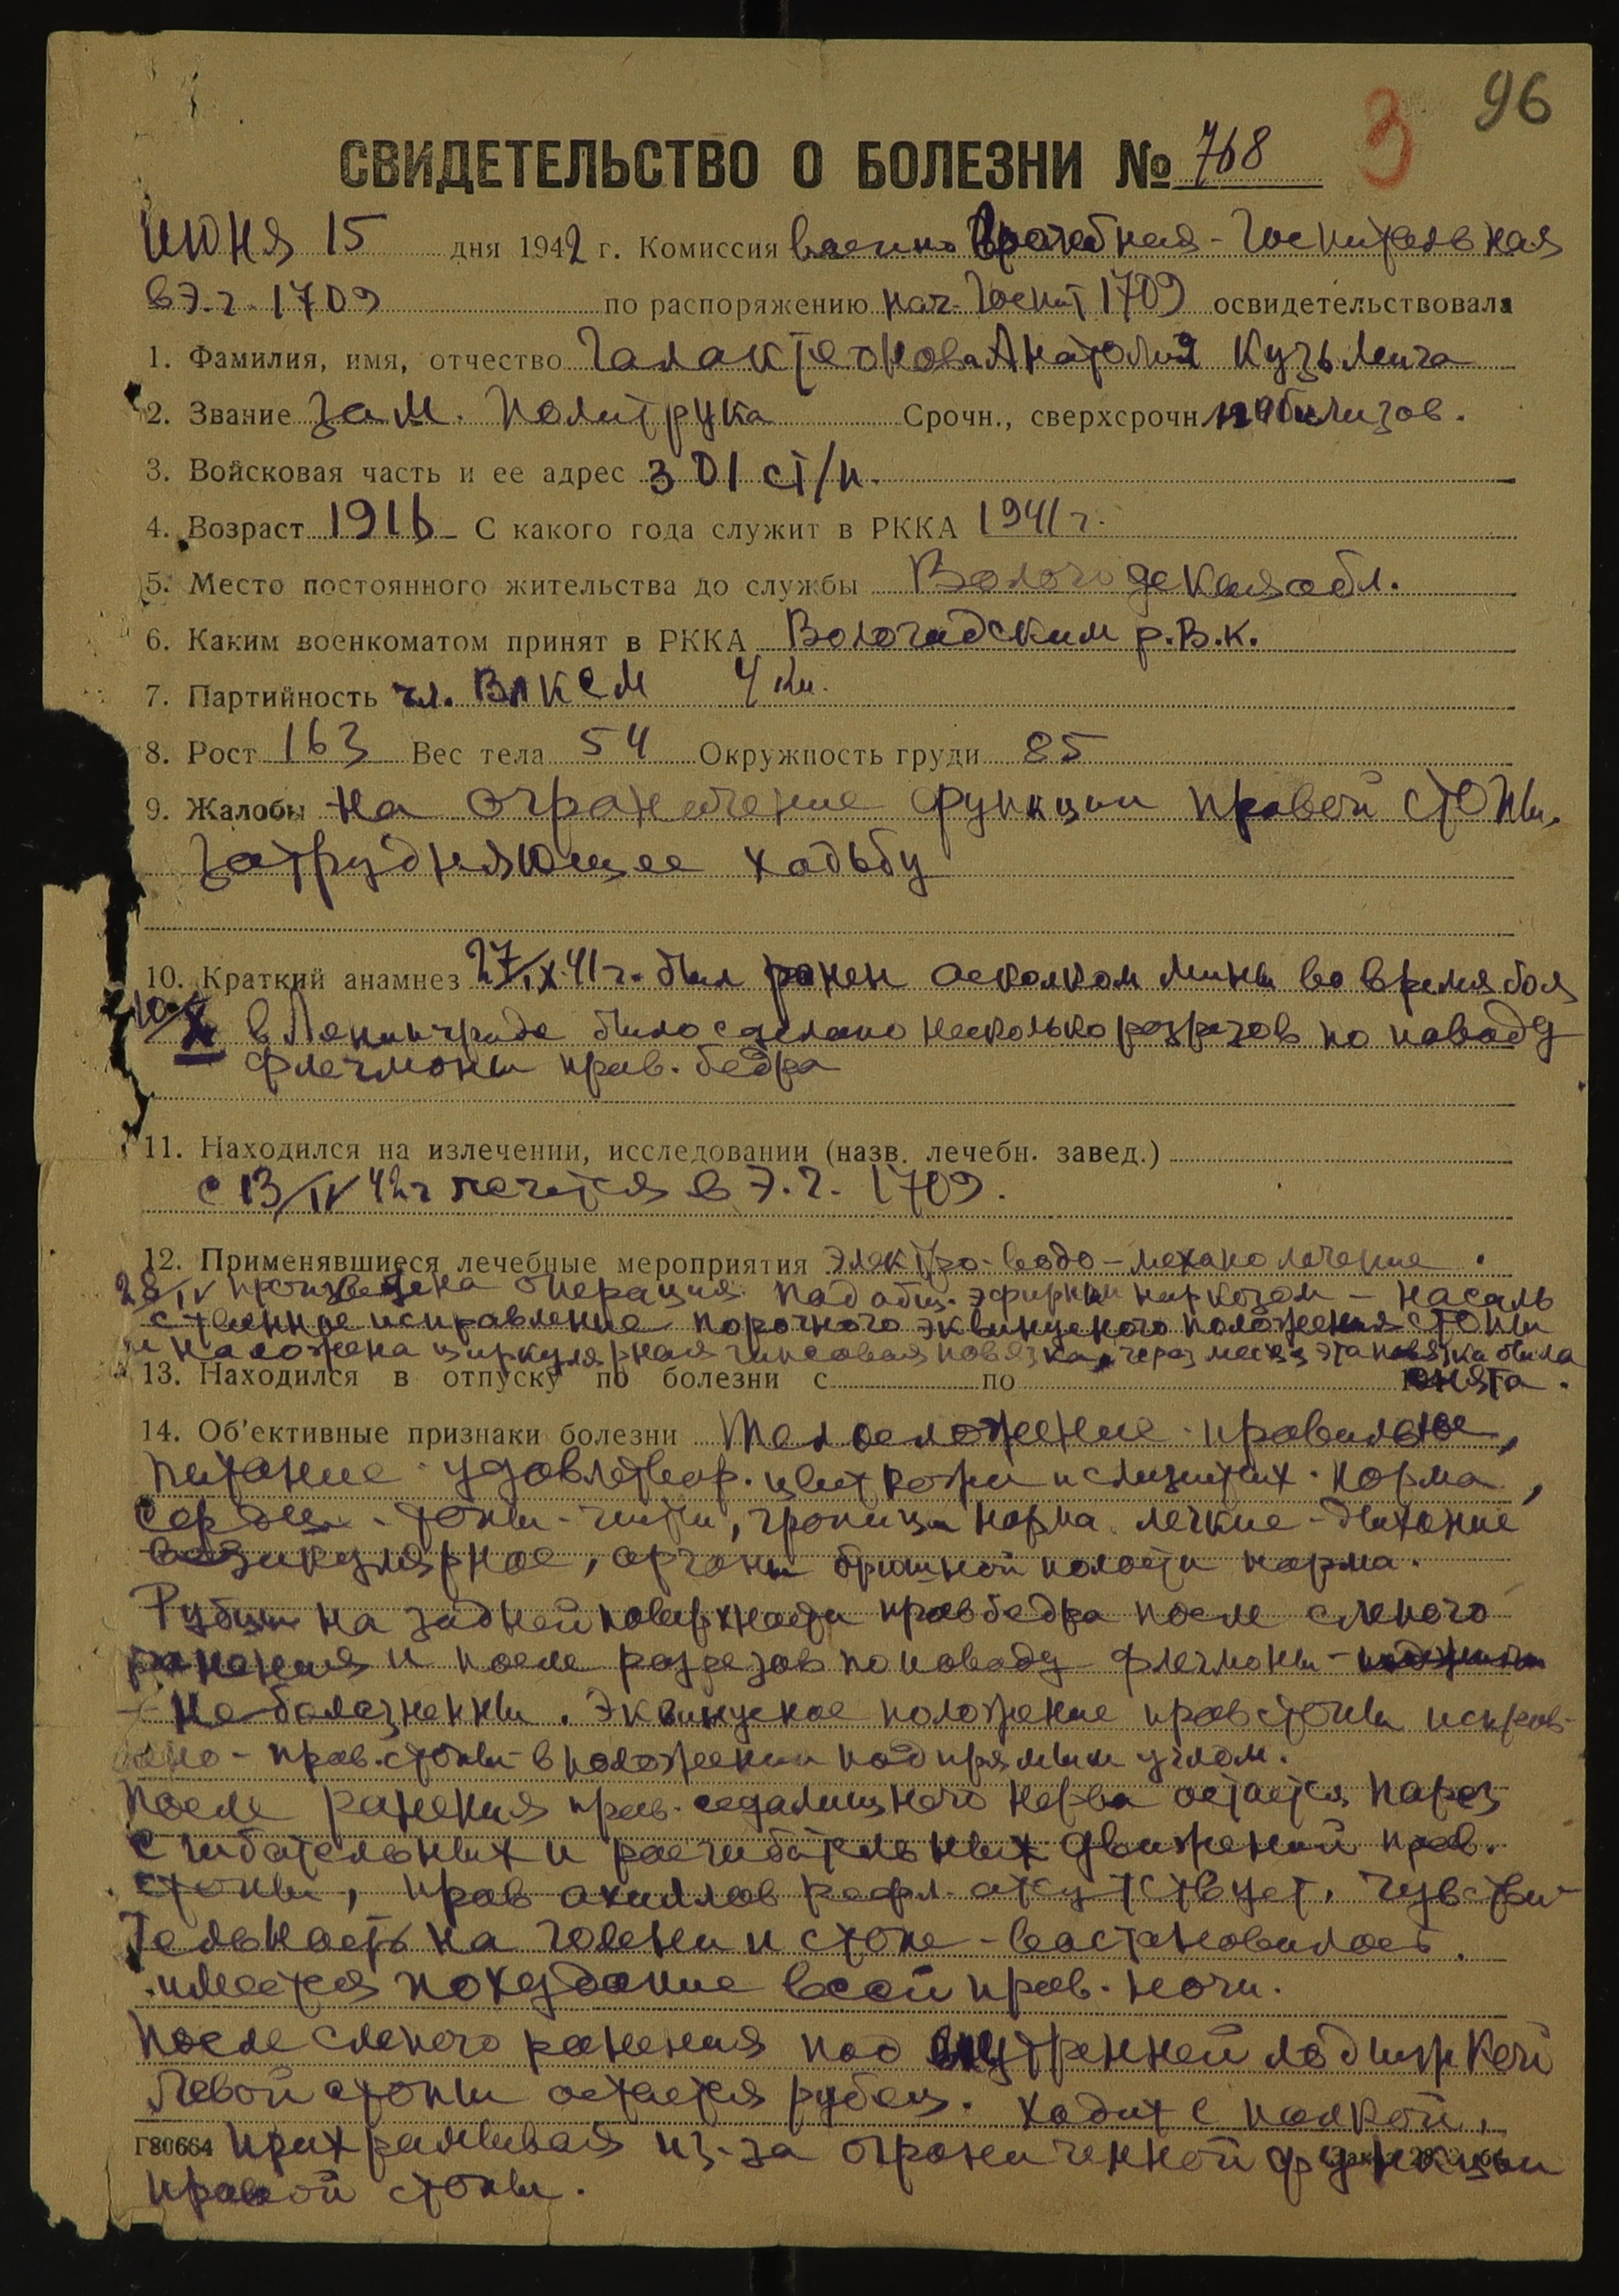 96
3
СВИДЕТЕЛЬСТВО О БОЛЕЗНИ № 768
июня 15 дня 1942 г. Комиссия военно врачебная - Госпитальная
в Э.Г. 1709 по распоряжению нач. Госпит 1709 освидетельствовала
1. Фамилия, имя, отчество Галактеонова Анатолия Кузьмича
2. Звание зам. политрука Срочн., сверхсрочн. мобилизов.
3. Войсковая часть и ее адрес 301 ст/п.
4. Возраст 1916 С какого года служит в РККА 1941 г.
5. Место постоянного жительства до службы Вологодская обл.
6. Каким военкоматом принят в РККА Вологодским р.в.к.
7. Партийность чл. ВЛКСМ 4 кл.
8. Рост 163 Вес тела 54 Окружность груди 85
9. Жалобы на ограничение функции правой стопы,
затрудняющее ходьбу
10. Краткий анамнез 27/IX 41 г. был ранен осколком мины во время боя
10/X в Ленинграде было сделано несколько разрезов по поводу
флегмоны прав. бедра
11. Находился на излечении, исследовании (назв. лечебн. завед.)
с 13/IV 42 г лечится в Э.Г. 1709.
12. Применявшиеся лечебные мероприятия электро-водо-механолечение.
28/IV произведена операция под общ. эфирным наркозом - насиль
ственное исправление порочного эквинусного положения стопы
и наложена циркулярная гипсовая повязка, через месяц эта повязка была
13. Находился в отпуску по болезни с по снята.
14. Об'ективные признаки болезни Телосложение правильное,
питание удовлетвор. цвет кожи и слизистых норма,
Сердце - тоны - чисты, границы норма. легкие - дыхание
везикулярное, органы брюшной полости норма.
Рубцы на задней поверхности прав бедра после слепого
ранения и после разрезов по поводу флегмоны -
не болезненны. Эквинусное положение прав стопы исправ-
лено - прав. стопы в положении под прямым углом.
После ранения прав. седалищного нерва остается парез
сгибательных и расгибательных движений прав.
стопы, прав ахиллов рефл. отсутствует. Чувстви-
тельность на голени и стопе - востановилась.
имеется похудание всей прав. ноги.
После слепого ранения под внутренней лодыжкой
левой стопы остается рубец. Ходит с палкой,
Г80664 прихрамывая из-за ограниченной функции
правой стопы.